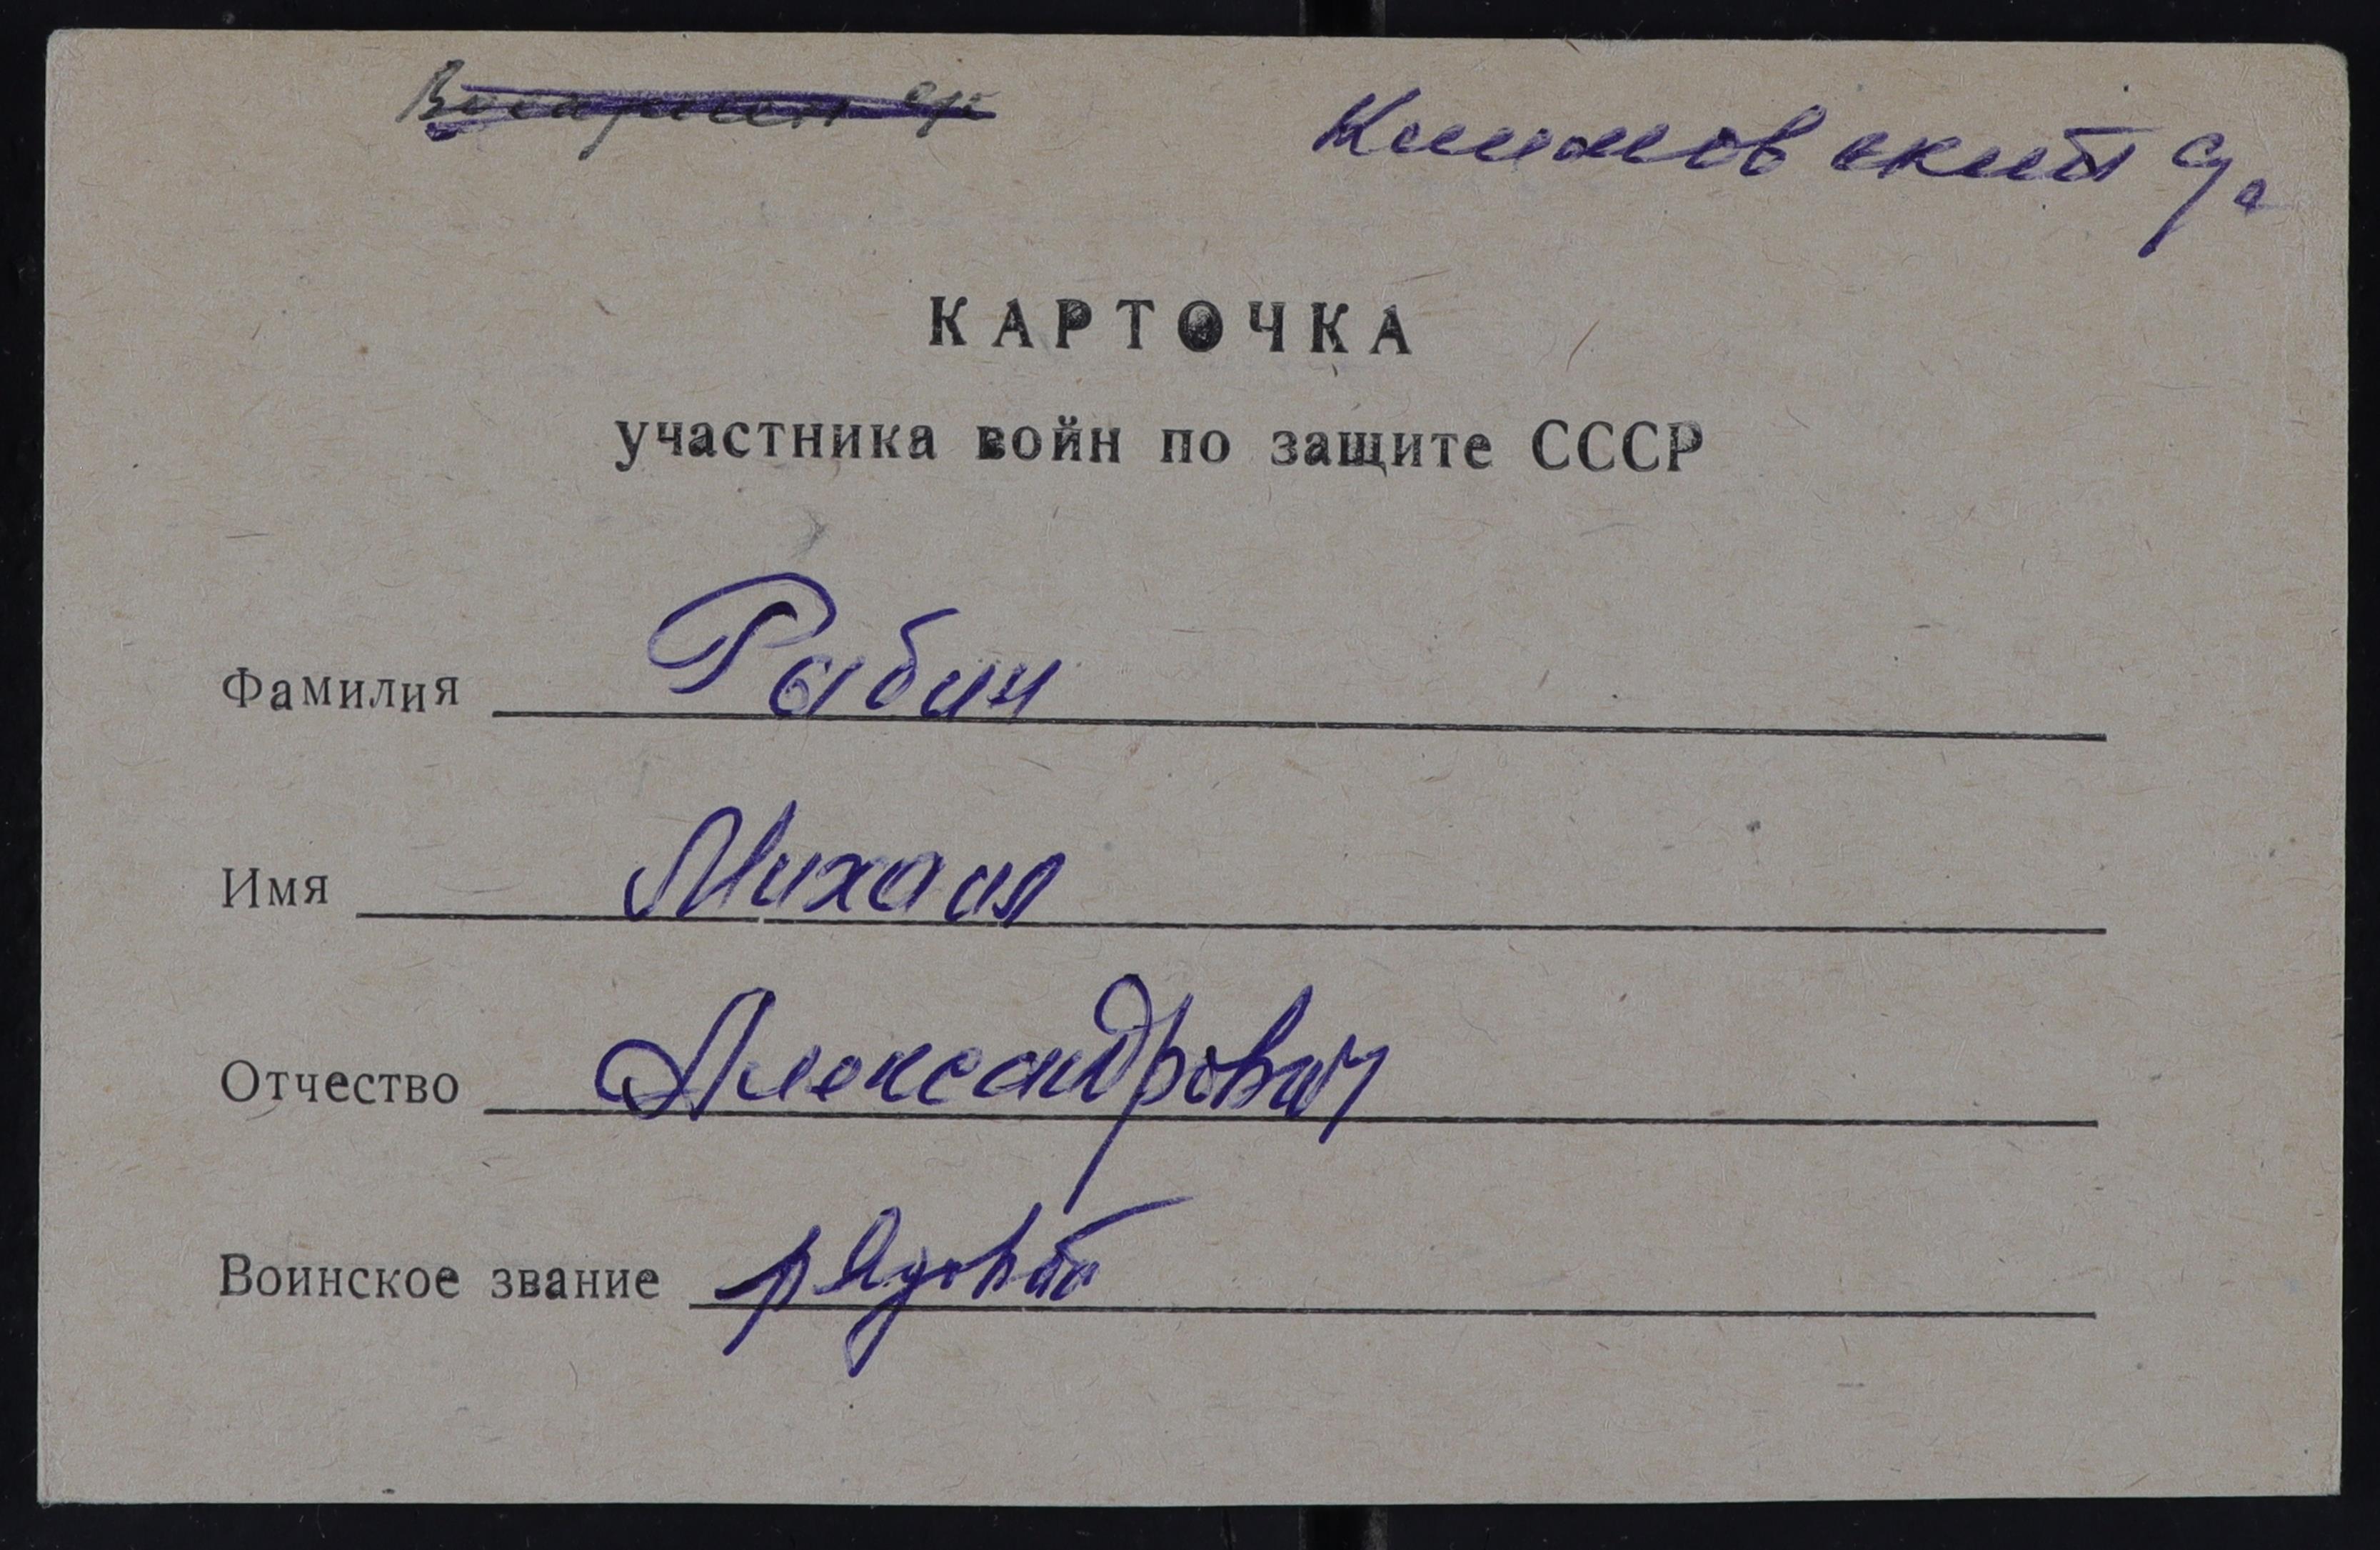 Климовский
КАРТОЧКА
участника войн по защите СССР
Фамилия Рабин
Имя Михаил
Отчество Александрович
Воинское звание рядовой